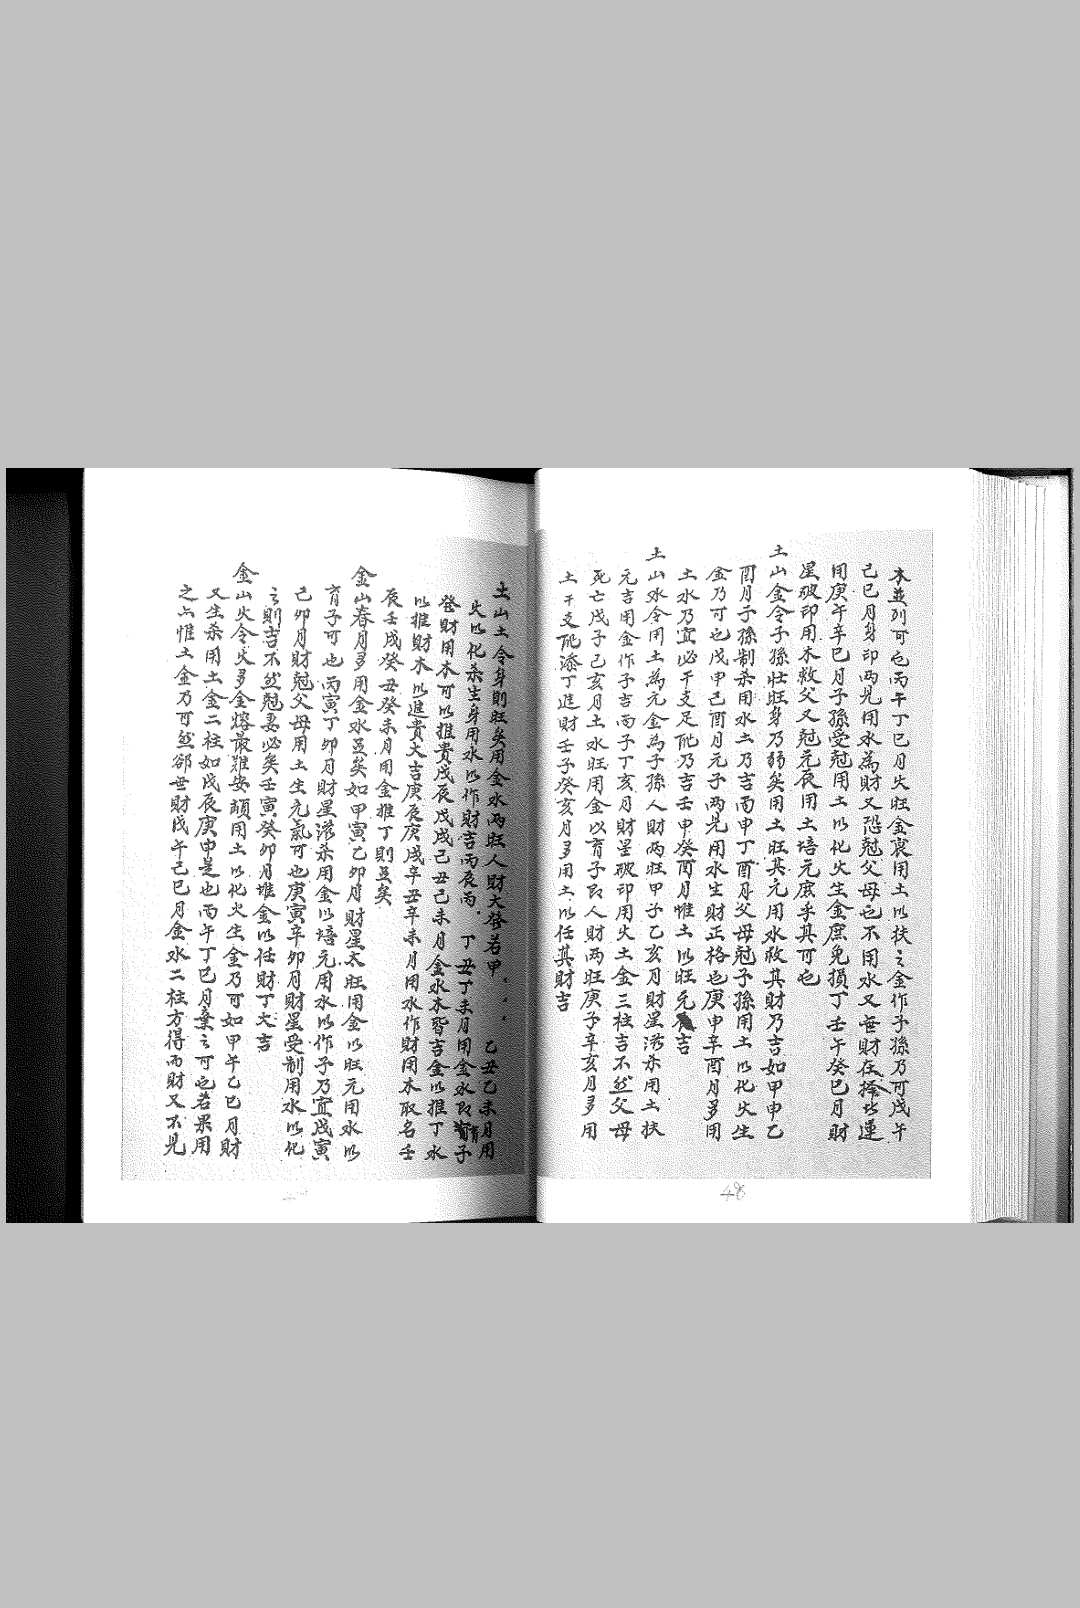 木並列可也丙午丁巳月火旺金衰用土以扶之金作子孫乃可戊午
己巳月身印兩見用水為財又恐尅父母也不用水又無財在 此運
用庚午辛巳月子孫受尅用土以化火生金庶免損丁壬午癸巳月財
星破印用木救父又尅元辰用土培元庶乎其可也
土山金令子孫壯旺身乃弱矣用土旺其元用水救其財乃吉如甲申乙
酉月子孫制杀用水土乃吉丙申丁酉月父母尅子孫用土以化火生
金乃可也戊申己酉月元子兩見用水生財正格也庚申辛酉月多用
土水乃宜必干支足配乃吉壬申癸酉月惟土以旺元 吉
土山水令用土為元金為子孫人財兩旺甲子乙亥月財星滋杀用土扶
元吉用金作子吉丙子丁亥月財星破印用火土金三柱吉不然父母
死亡戊子己亥月土水旺用金以育子良人財兩旺庚子辛亥月多用
土干支配添丁進財壬子癸亥月多用土以任其財吉
48
土山土令身則旺矣用金水兩旺人財大發若甲 乙丑乙未月用
火以化杀生身用水以作財吉丙辰丙 丁丑丁未月用金水良 子
發財用木可以推貴戊辰戊戌己丑己未月金水木皆吉金以推丁水
以推財木以進貴大吉庚辰庚戌辛丑辛未月用水作財用木取名壬
辰壬戌癸丑癸未月用金推丁則亘矣
金山春月多用金水亘矣如甲寅乙卯月財星太旺用金以旺元用水以
育子可也丙寅丁卯月財星滋杀用金以培元用水以作子乃宜戊寅
己卯月財尅父母用土生元氣可也庚寅辛卯月財星受制用水以化
之則吉不然尅妻必矣壬寅癸卯月堆金以任財丁大吉
金山火令火多金熔最難安頓用土以化火生金乃可如甲午乙巳月財
又生杀用土金二柱如戊辰庚申是也丙午丁巳月棄之可也若果用
之亦惟土金乃可然卻無財戊午己巳月金水二柱方得而財又不見